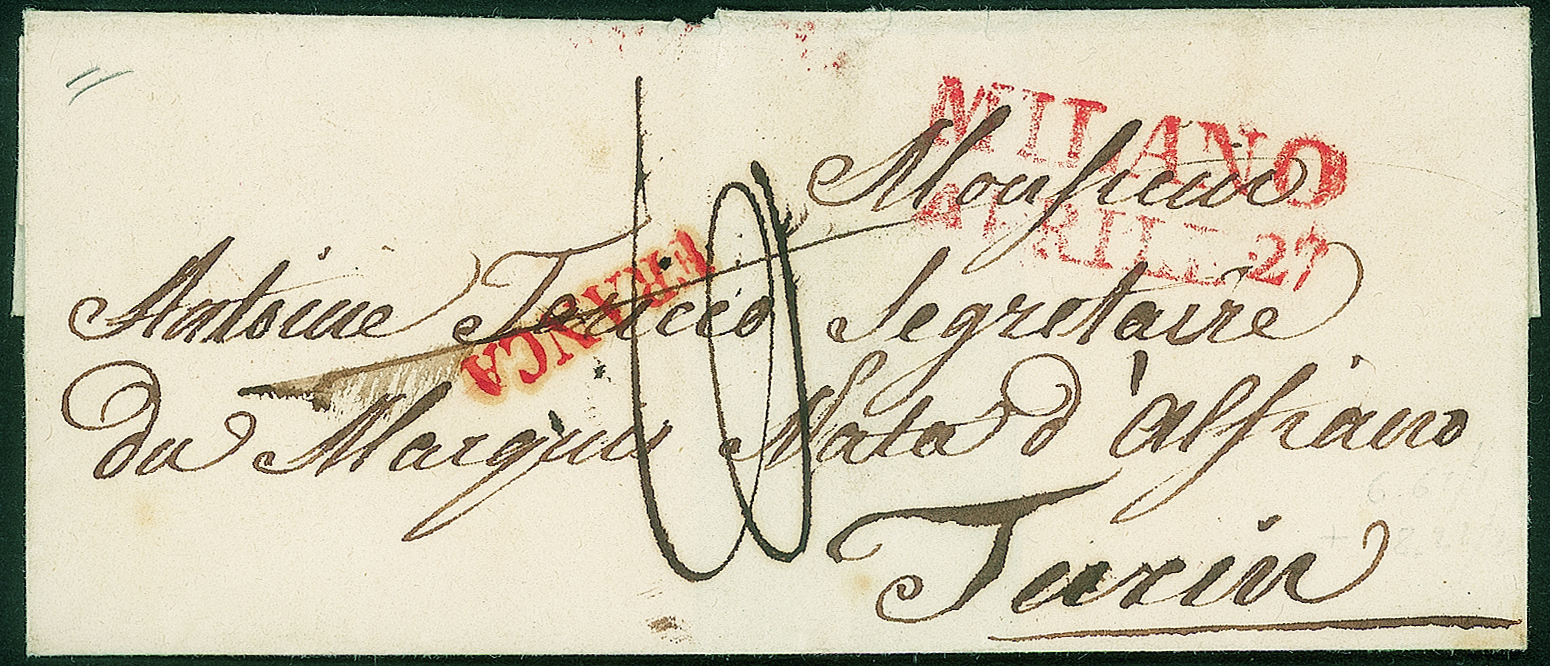 MILANO
APRILE 27
Monsieur
FRANCA
Antoine Segretaire
du Marquis Nata d'Alfiano
Turin
10